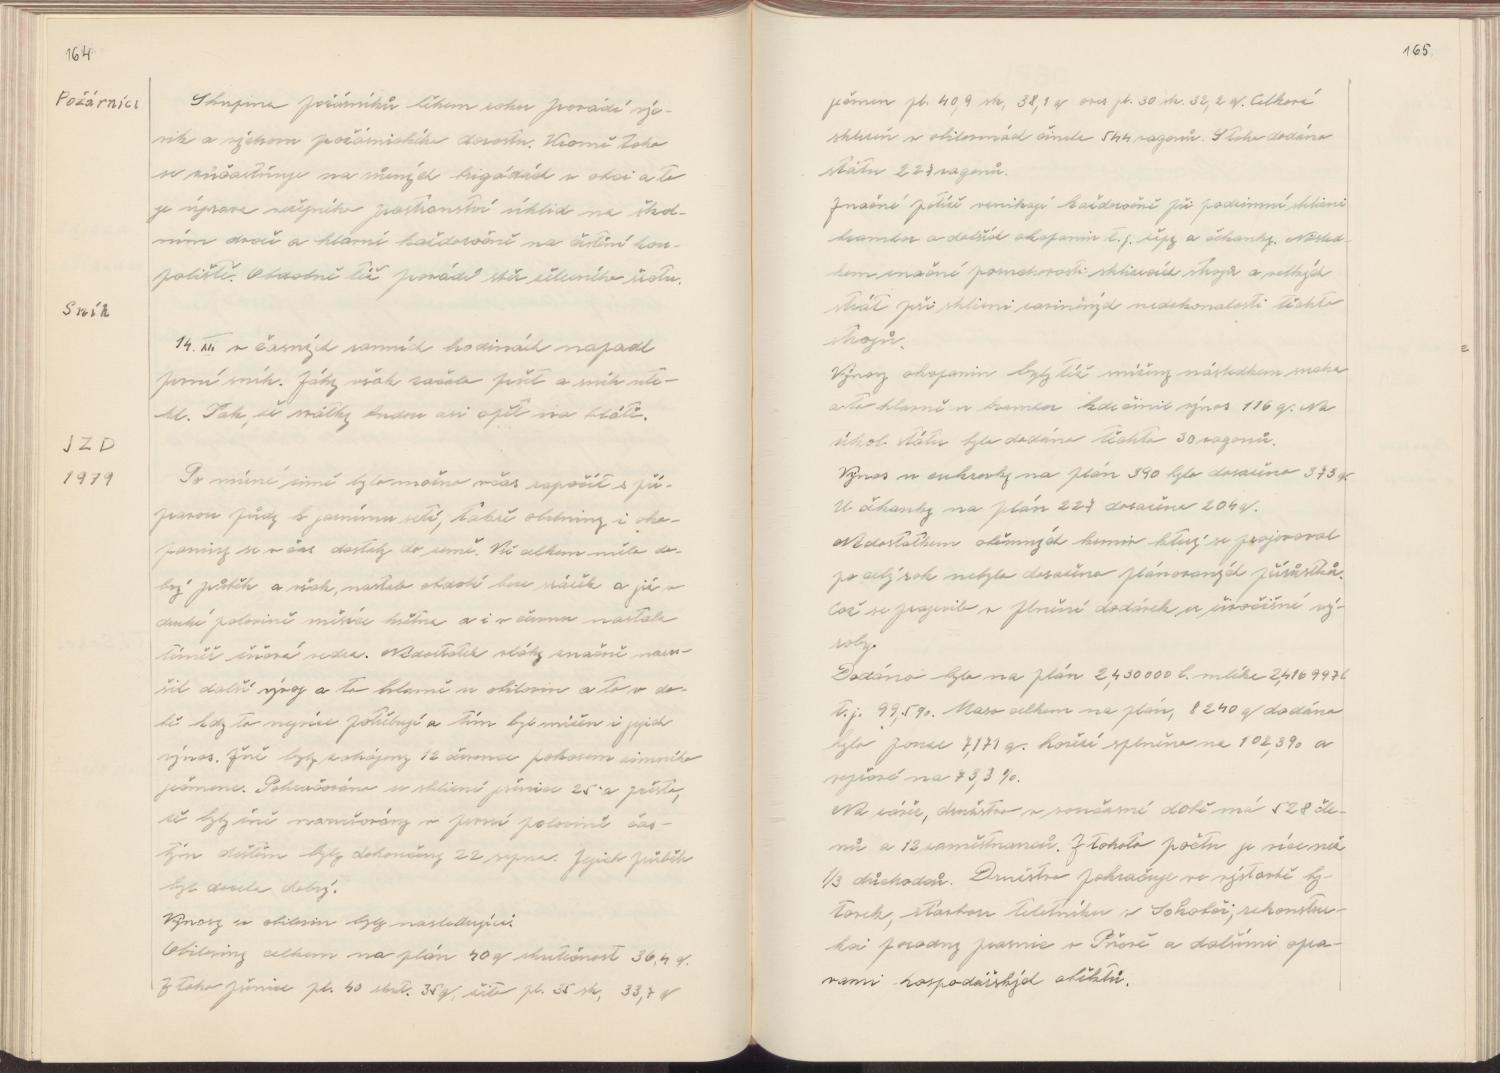 164
Požárníci
Skupina požárníků během roku provádí výc-
vik a výchovu požárnického dorostu. Kromě toho
se zúčastňuje na různých brigádách v obci a to
je úprava veřejného prostranství úklid na škol-
ním dvoře a hlavně každoročně na čistění kou-
paliště. Obdobně též provádí sběr železného šrotu.
Sníh
14. XII. v časných ranních hodinách napadl
první sníh. Záhy však začalo pršet a sníh zte-
kl. Tak, že svátky budou asi opět na blátě.
JZD
1979
Po mírné zimě bylo možno včas započít s pří-
pravou půdy k jarnímu setí, takže obilniny i oko-
paniny se v čas dostaly do země. Vše celkem mělo do-
brý průběh a však, nastalo období beze srážek a již v
druhé polovině měsíce května a i v červnu nastalo
téměř úplné sucho. Nedostatek vláhy značně naru-
šil další vývoj a to hlavně u obilovin a to v do-
bě kdy to nejvíce potřebují a tím byl snížen i jejich
výnos. Žně byly zahájeny 12 července pokosem ozimného
ječmene. Pokračováno se sklizní pšenice 25. a přesto,
že byly žně narušovány v první polovině čas-
tým deštěm byly dokončeny 22 srpna. Jejich průběh
byl docela dobrý.
Výnosy u obilovin byly nasledující:
Obiloviny celkem na plán 40 q skutečnost 36,4 q.
Z toho pšenice pl. 40 skut. 35 q, žito pl. 35 sk, 33,7 q
165
ječmen pl. 40,9 sk, 38,1 q oves pl. 30 sk. 32,2 q. Celková
sklizeň v obilovinách činila 544 vagonů. Z toho dodáno
státu 227 vagonů.
Značné potíže vznikají každoročně při podzimní sklizni
brambor a dalších okopanin t.j. řepy a čekanky. Násled-
kem značné poruchovosti sklizecích strojů a velkých
ztrát při sklizni zaviněných nedokonalostí těchto
strojů.
Výnosy okopanin byly též sníženy následkem sucha
a to hlavně u brambor kde činil výnos 116 q. Na
úkol státu bylo dodáno těchto 30 vagonů.
Výnos u cukrovky na plán 390 bylo dosaženo 373 q
U čekanky na plán 227 dosaženo 204 q.
Nedostatkem objemných krmiv který se projevoval
po celý rok nebylo dosaženo plánovaných přírůstků.
Což se projevilo v plnění dodávek u živočišné vý-
roby.
Dodáno bylo na plán 2,430000 l. mléka 2,416997 l
t.j. 99,5 %. Maso celkem na plán, 8240 q dodáno
bylo pouze 7,171 q. Hovězí splněno na 102,3 % a
vepřové na 73,3 %.
Na závěr, družstvo v současné době má 528 čle-
nů a 12 zaměstnanců. Z tohoto počtu je více než
1/3 důchodců. Družstvo pokračuje ve výstavbě by-
tovek, stavbou teletníku v Sokolči, rekonstru-
kci porodny prasnic v Pňově a dalšími opra-
vami hospodářských objektů.